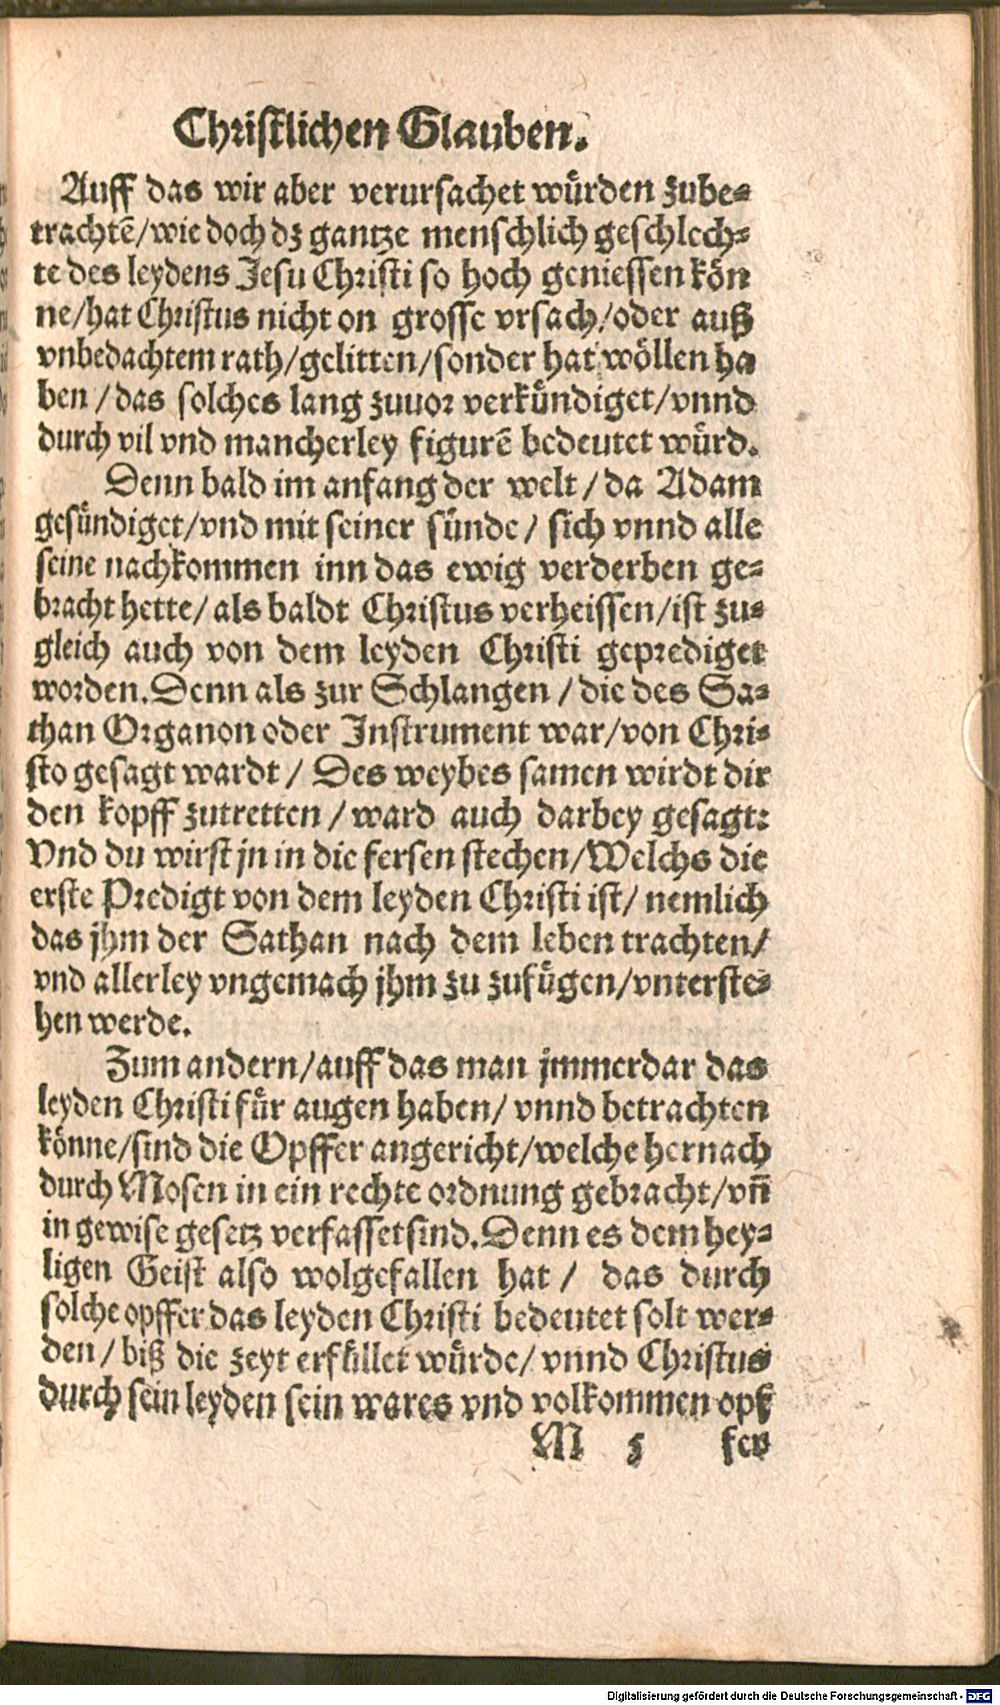 Christlichen Glauben.
Auff das wir aber verursachet würden zube⸗
trachtẽ/wie doch dz gantze menschlich geschlech⸗
te des leydens Jesu Christi so hoch geniessen kön
ne/hat Christus nicht on grosse vrsach/oder auß
vnbedachtem rath/gelitten/sonder hat wöllen ha
ben/das solches lang zuuor verkündiget/vnnd
durch vil vnd mancherley figurẽ bedeutet würd.
Denn bald im anfang der welt/da Adam
gesündiget/vnd mit seiner sünde/sich vnnd alle
seine nachkommen inn das ewig verderben ge⸗
bracht hette/als baldt Christus verheissen/ist zu⸗
gleich auch von dem leyden Christi geprediget
worden. Denn als zur Schlangen/die des Sa⸗
than Organon oder Instrument war/von Chri⸗
sto gesagt wardt/Des weybes samen wirdt dir
den kopff zutretten/ward auch darbey gesagt:
Vnd du wirst jn in die fersen stechen/Welchs die
erste Predigt von dem leyden Christi ist/nemlich
das jhm der Sathan nach dem leben trachten/
vnd allerley vngemach jhm zu zufügen/vnterste⸗
hen werde.
Zum andern/auff das man jmmerdar das
leyden Christi für augen haben/vnnd betrachten
könne/sind die Opffer angericht/welche hernach
durch Mosen in ein rechte ordnung gebracht/vñ
in gewise gesetz verfasset sind. Denn es dem hey⸗
ligen Geist also wolgefallen hat/das durch
solche opffer das leyden Christi bedeutet solt wer⸗
den/biß die zeyt erfüllet würde/vnnd Christus
durch sein leyden sein wares vnd volkommen opf
M 5 fer
Digitalisierung gefördert durch die Deutsche Forschungsgemeinschaft - DFG